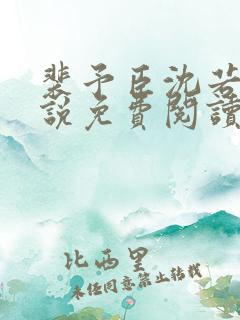 裴予臣沈若
說免費閱讀
比西里
未经同意禁止转载